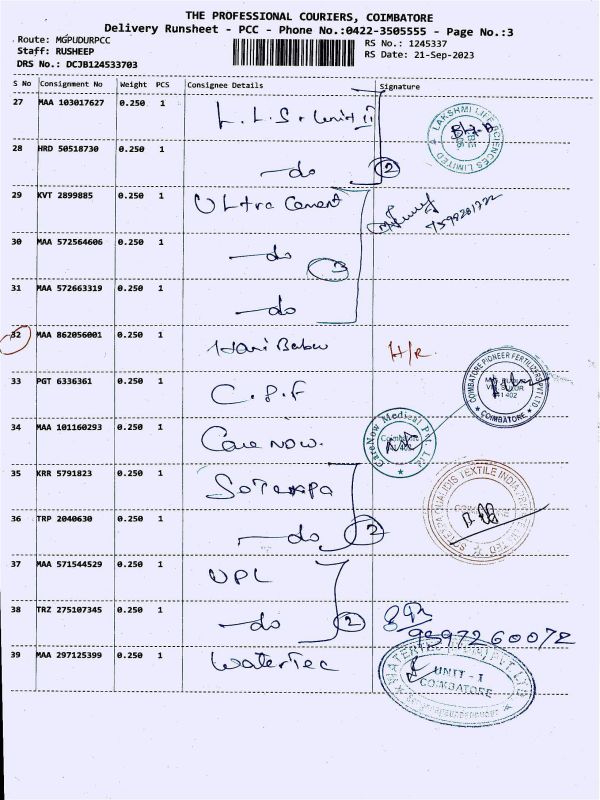 THE PROFESSIONAL COURIERS, COIMBATORE
Delivery Runsheet - PCC - Phone No.:0422-3505555 - Page No.:3
Route: MGPUDURPCC
RS No.: 1245337
Staff: RUSHEEP
RS Date: 21-Sep-2023
DRS No.: DCJB124533703
S No Consignment No Weight PCS Consignee Details Signature
27 MAA 103017627 0.250 1 L.L.S. Unit II
LAKSHMI LIFE SCIENCES LIMITED
28 HRD 50518730 0.250 1 do 2
29 KVT 2899885 0.250 1 Ultra Cement
30 MAA 572564606 0.250 1 do 3
31 MAA 572663319 0.250 1 do
32 MAA 862056001 0.250 1 Hari Babu H/R.
33 PGT 6336361 0.250 1 C.P.F
COIMBATORE PIONEER FERTILIZERS PVT LTD
COIMBATORE
34 MAA 101160293 0.250 1 Care Now.
CareNow Medical Pvt. Ltd
35 KRR 5791823 0.250 1
TEXTILE INDIA
36 TRP 2040630 0.250 1 do 2
37 MAA 571544529 0.250 1 UPL
38 TRZ 275107345 0.250 1 do 2
39 MAA 297125399 0.250 1 WaterTec
UNIT - I
COIMBATORE